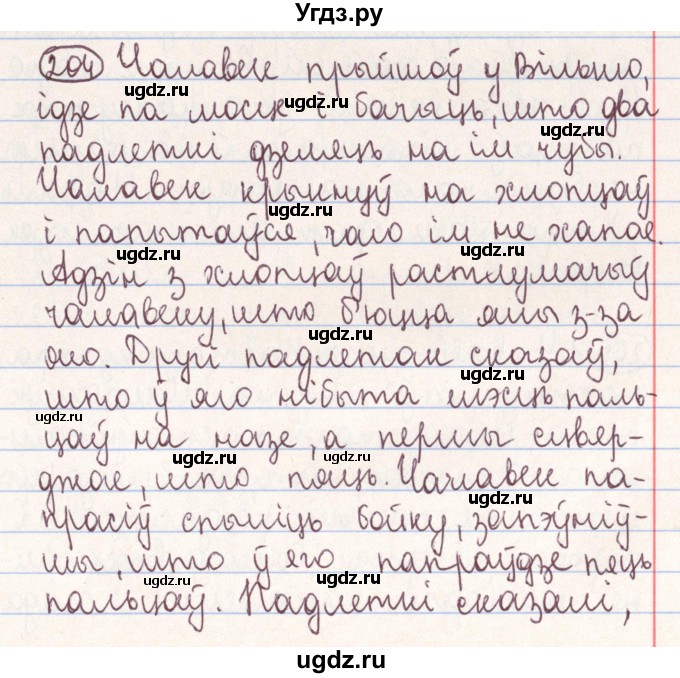 Угдз.ру
204 Чалавек прыйшоў у Вільню,
ugdz.ru ugdz.ru
ідзе па моск і бачыць, што два
ugdz.ru
падлеткі дзеляць на ім чубы.
Чалавек крыкнуў на хлопцаў
ugdz.ru
і папытаўся, чаго ім не хапае.
ugdz.ru ugdz.ru
Адзін з хлопцаў растлумачыў
чалавеку, што б'юцца яны з-за
ugdz.ru
яго. Другі падлетак сказаў,
ugdz.ru
што ў яго нібыта шэсць паль-
ugdz.ru
цаў на назе, а першы сцвер-
ugdz.ru
джае, што пяць. Чалавек па-
ugdz.ru ugdz.ru
прасіў спыніць бойку, запэўніў-
шы, што ў яго папраўдзе пяць
ugdz.ru ugdz.ru
пальцаў. Падлеткі сказалі,
ugdz.ru
ugdz.ru